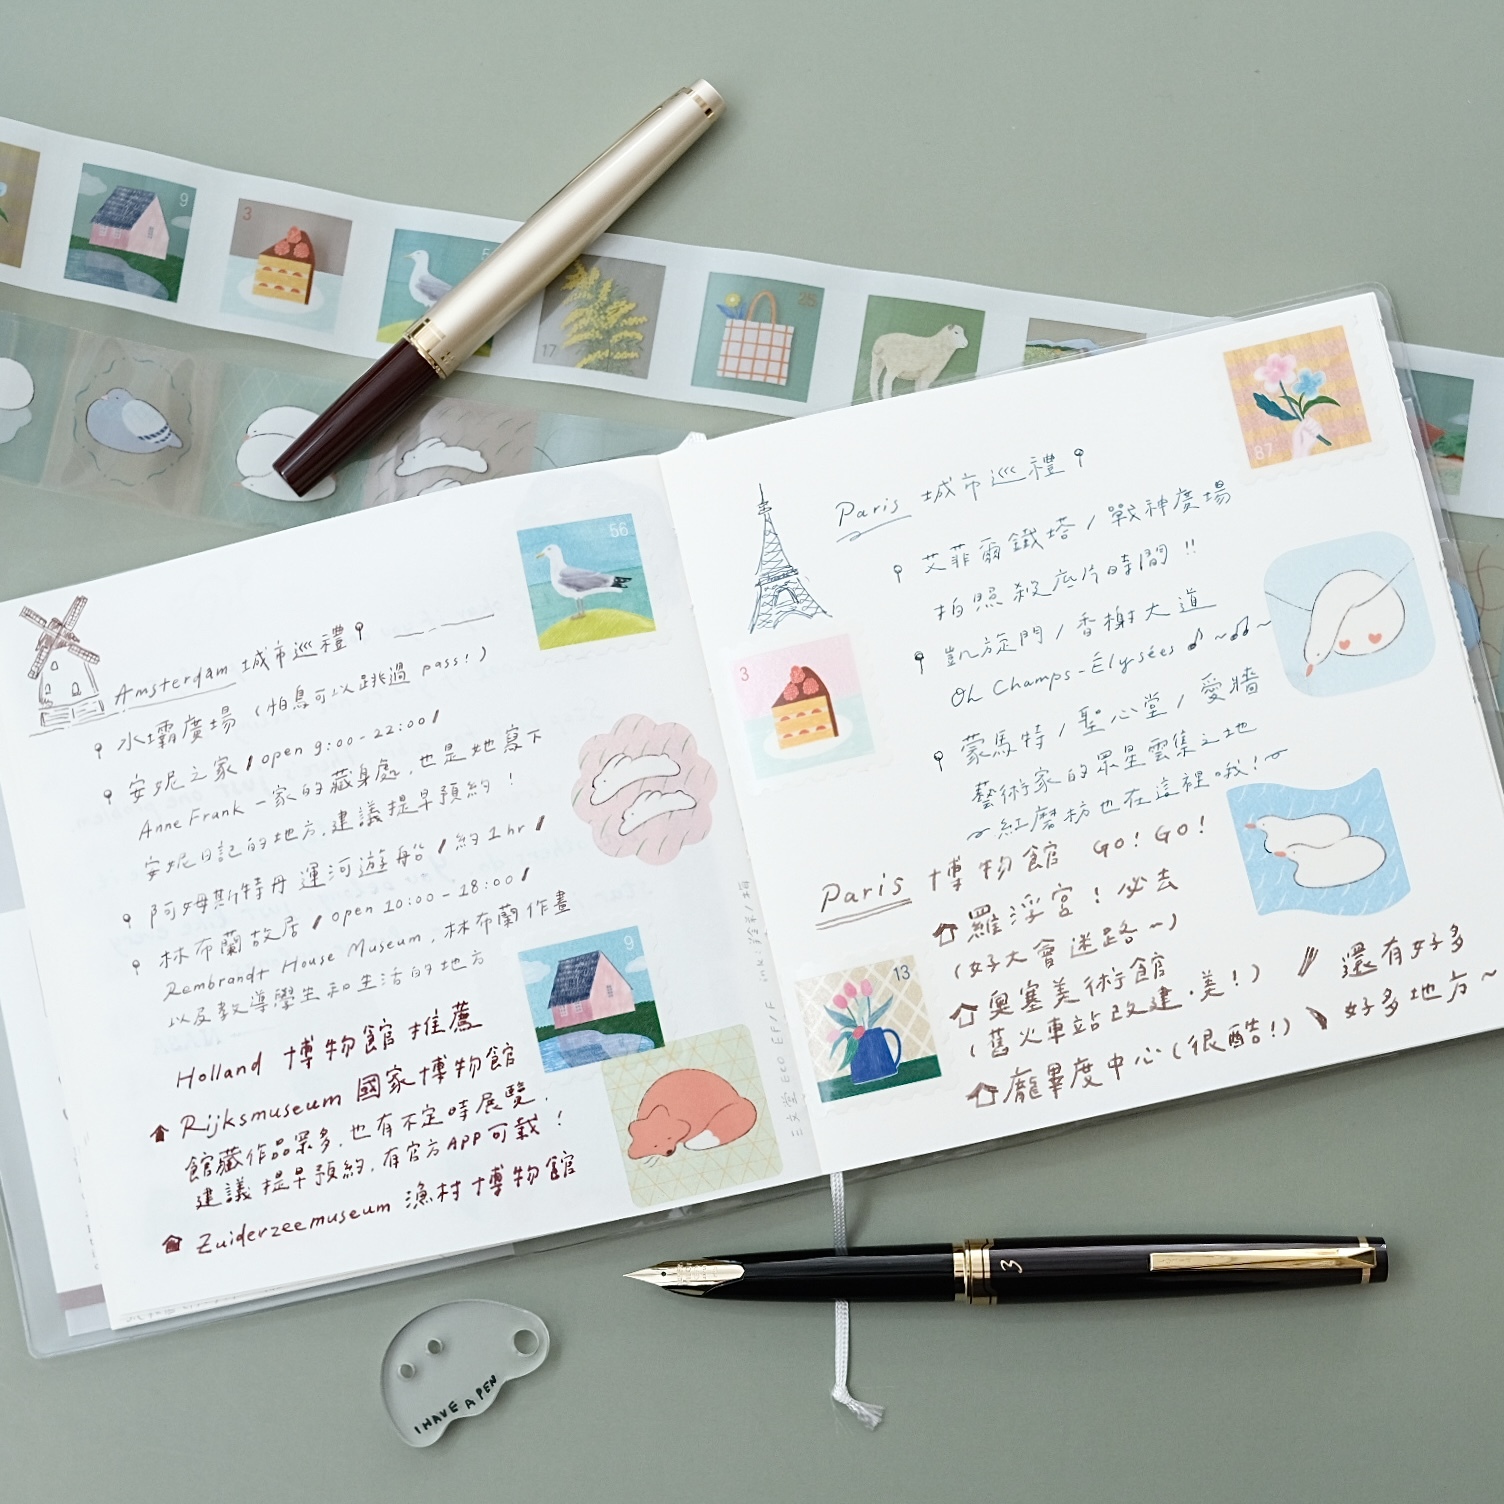 9
3
17
25
Amsterdam 城市巡禮
水壩廣場 (怕鳥可以跳過 pass!)
安妮之家 / open 9:00-22:00 /
Anne Frank 一家的藏身處, 也是她寫下
安妮日記的地方, 建議提早預約!
阿姆斯特丹 運河遊船 / 約 1hr /
林布蘭故居 / open 10:00-18:00 /
Rembrandt House Museum, 林布蘭作畫
以及教導學生和生活的地方
Holland 博物館推薦
Rijksmuseum 國家博物館
館藏作品眾多, 也有不定時展覽,
建議提早預約, 有官方APP可載!
Zuiderzeemuseum 漁村博物館
56
9
Paris 城市巡禮
艾菲爾鐵塔 / 戰神廣場
拍照殺底片時間!!
凱旋門 / 香榭大道
Oh Champs-Élysées ♪~♫~
蒙馬特 / 聖心堂 / 愛牆
藝術家的眾星雲集之地
~紅磨坊也在這裡哦!~
Paris 博物館 GO! GO!
羅浮宮! 必去
(好大會迷路~)
奧塞美術館
(舊火車站改建, 美!)
龐畢度中心 (很酷!)
還有好多
好多地方~
87
3
13
三文堂 Eco EF/F ink:
3
I HAVE A PEN